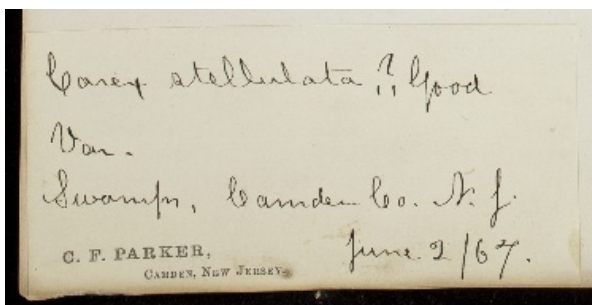 Carex stellulata ?? Good
Var.
Swamps, Camden Co. N. J.
June 2/67.
C. F. PARKER,
CAMDEN, NEW JERSEY.